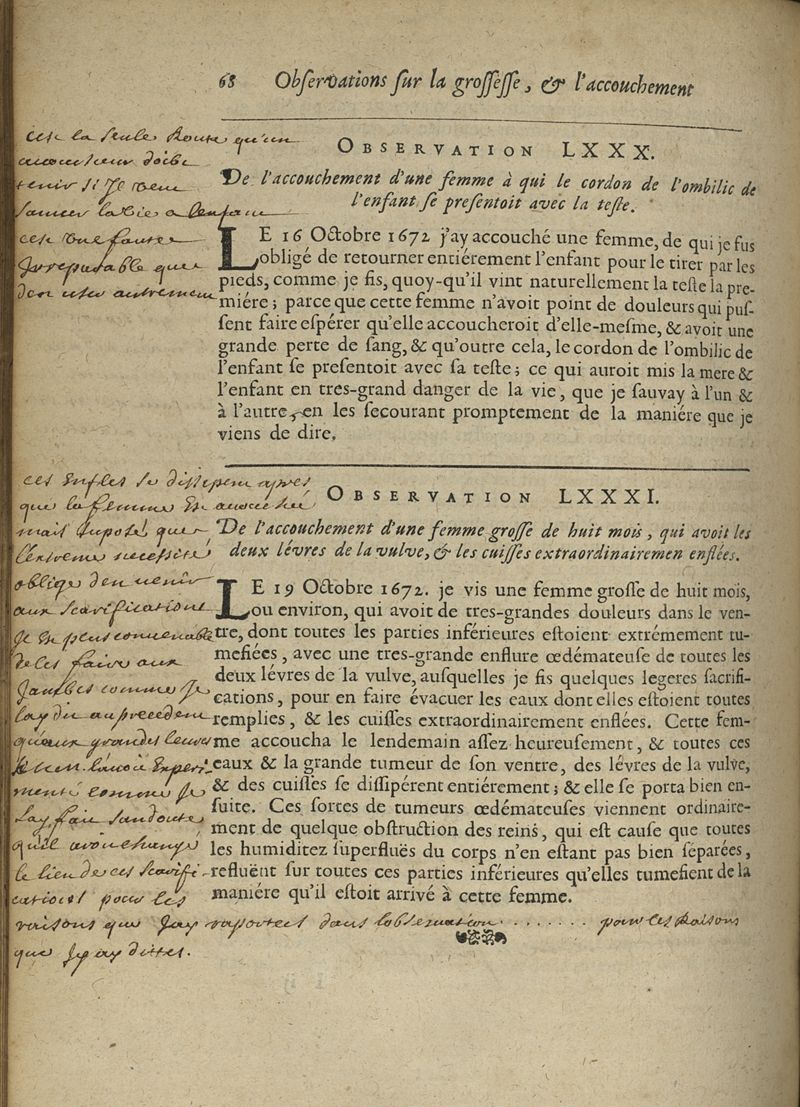 68 Obſervations ſur la groſſeſſe, & l'accouchement
OBSERVATION LXXX.
De l'accouchement d'une femme à qui le cordon de l'ombilic de
l'enfant ſe preſentoit avec la teſte.
LE 16 Octobre 1672 j'ay accouché une femme, de qui je fus
obligé de retourner entiérement l'enfant pour le tirer par les
pieds, comme je fis, quoy-qu'il vint naturellement la teſte la pre-
miére; parce que cette femme n'avoit point de douleurs qui puſ-
ſent faire eſpérer qu'elle accoucheroit d'elle-meſme, & avoit une
grande perte de ſang, & qu'outre cela, le cordon de l'ombilic de
l'enfant ſe preſentoit avec ſa teſte; ce qui auroit mis la mere &
l'enfant en tres-grand danger de la vie, que je ſauvay à l'un &
à l'autre, en les ſecourant promptement de la maniére que je
viens de dire.
c'est la seule qu'un
doibt
tenir si il veut
sauver la vie a l'enfant
c'est une faute
irreparable que
d'en user autrement
OBSERVATION LXXXI.
De l'accouchement d'une femme groſſe de huit mois, qui avoit les
deux lévres de la vulve, & les cuiſſes extraordinairemen enflées.
LE 19 Octobre 1672. je vis une femme groſſe de huit mois,
ou environ, qui avoit de tres-grandes douleurs dans le ven-
tre, dont toutes les parties inférieures eſtoient extrémement tu-
mefiées, avec une tres-grande enflure œdémateuſe de toutes les
deux lévres de la vulve, auſquelles je fis quelques legeres ſacrifi-
cations, pour en faire évacuer les eaux dont elles eſtoient toutes
remplies, & les cuiſſes extraordinairement enflées. Cette fem-
me accoucha le lendemain aſſez heureuſement, & toutes ces
eaux & la grande tumeur de ſon ventre, des lévres de la vulve,
& des cuiſſes ſe diſſipérent entiérement; & elle ſe porta bien en-
ſuite. Ces ſortes de tumeurs œdémateuſes viennent ordinaire-
ment de quelque obſtruction des reins, qui eſt cauſe que toutes
les humiditez ſuperfluës du corps n'en eſtant pas bien ſéparées,
refluënt ſur toutes ces parties inférieures qu'elles tumefient de la
maniére qu'il eſtoit arrivé à cette femme.
que la femme
mais suposé que
l'extreme necessité
oblige d'en venir
aux scarifications
de les faire aux
jambes comme
sans doute
le lieu de ces scarifi-
cations pour les
raisons que j'ay raportees dans l'observation ....... pour les raisons
que j'y ay dittes.